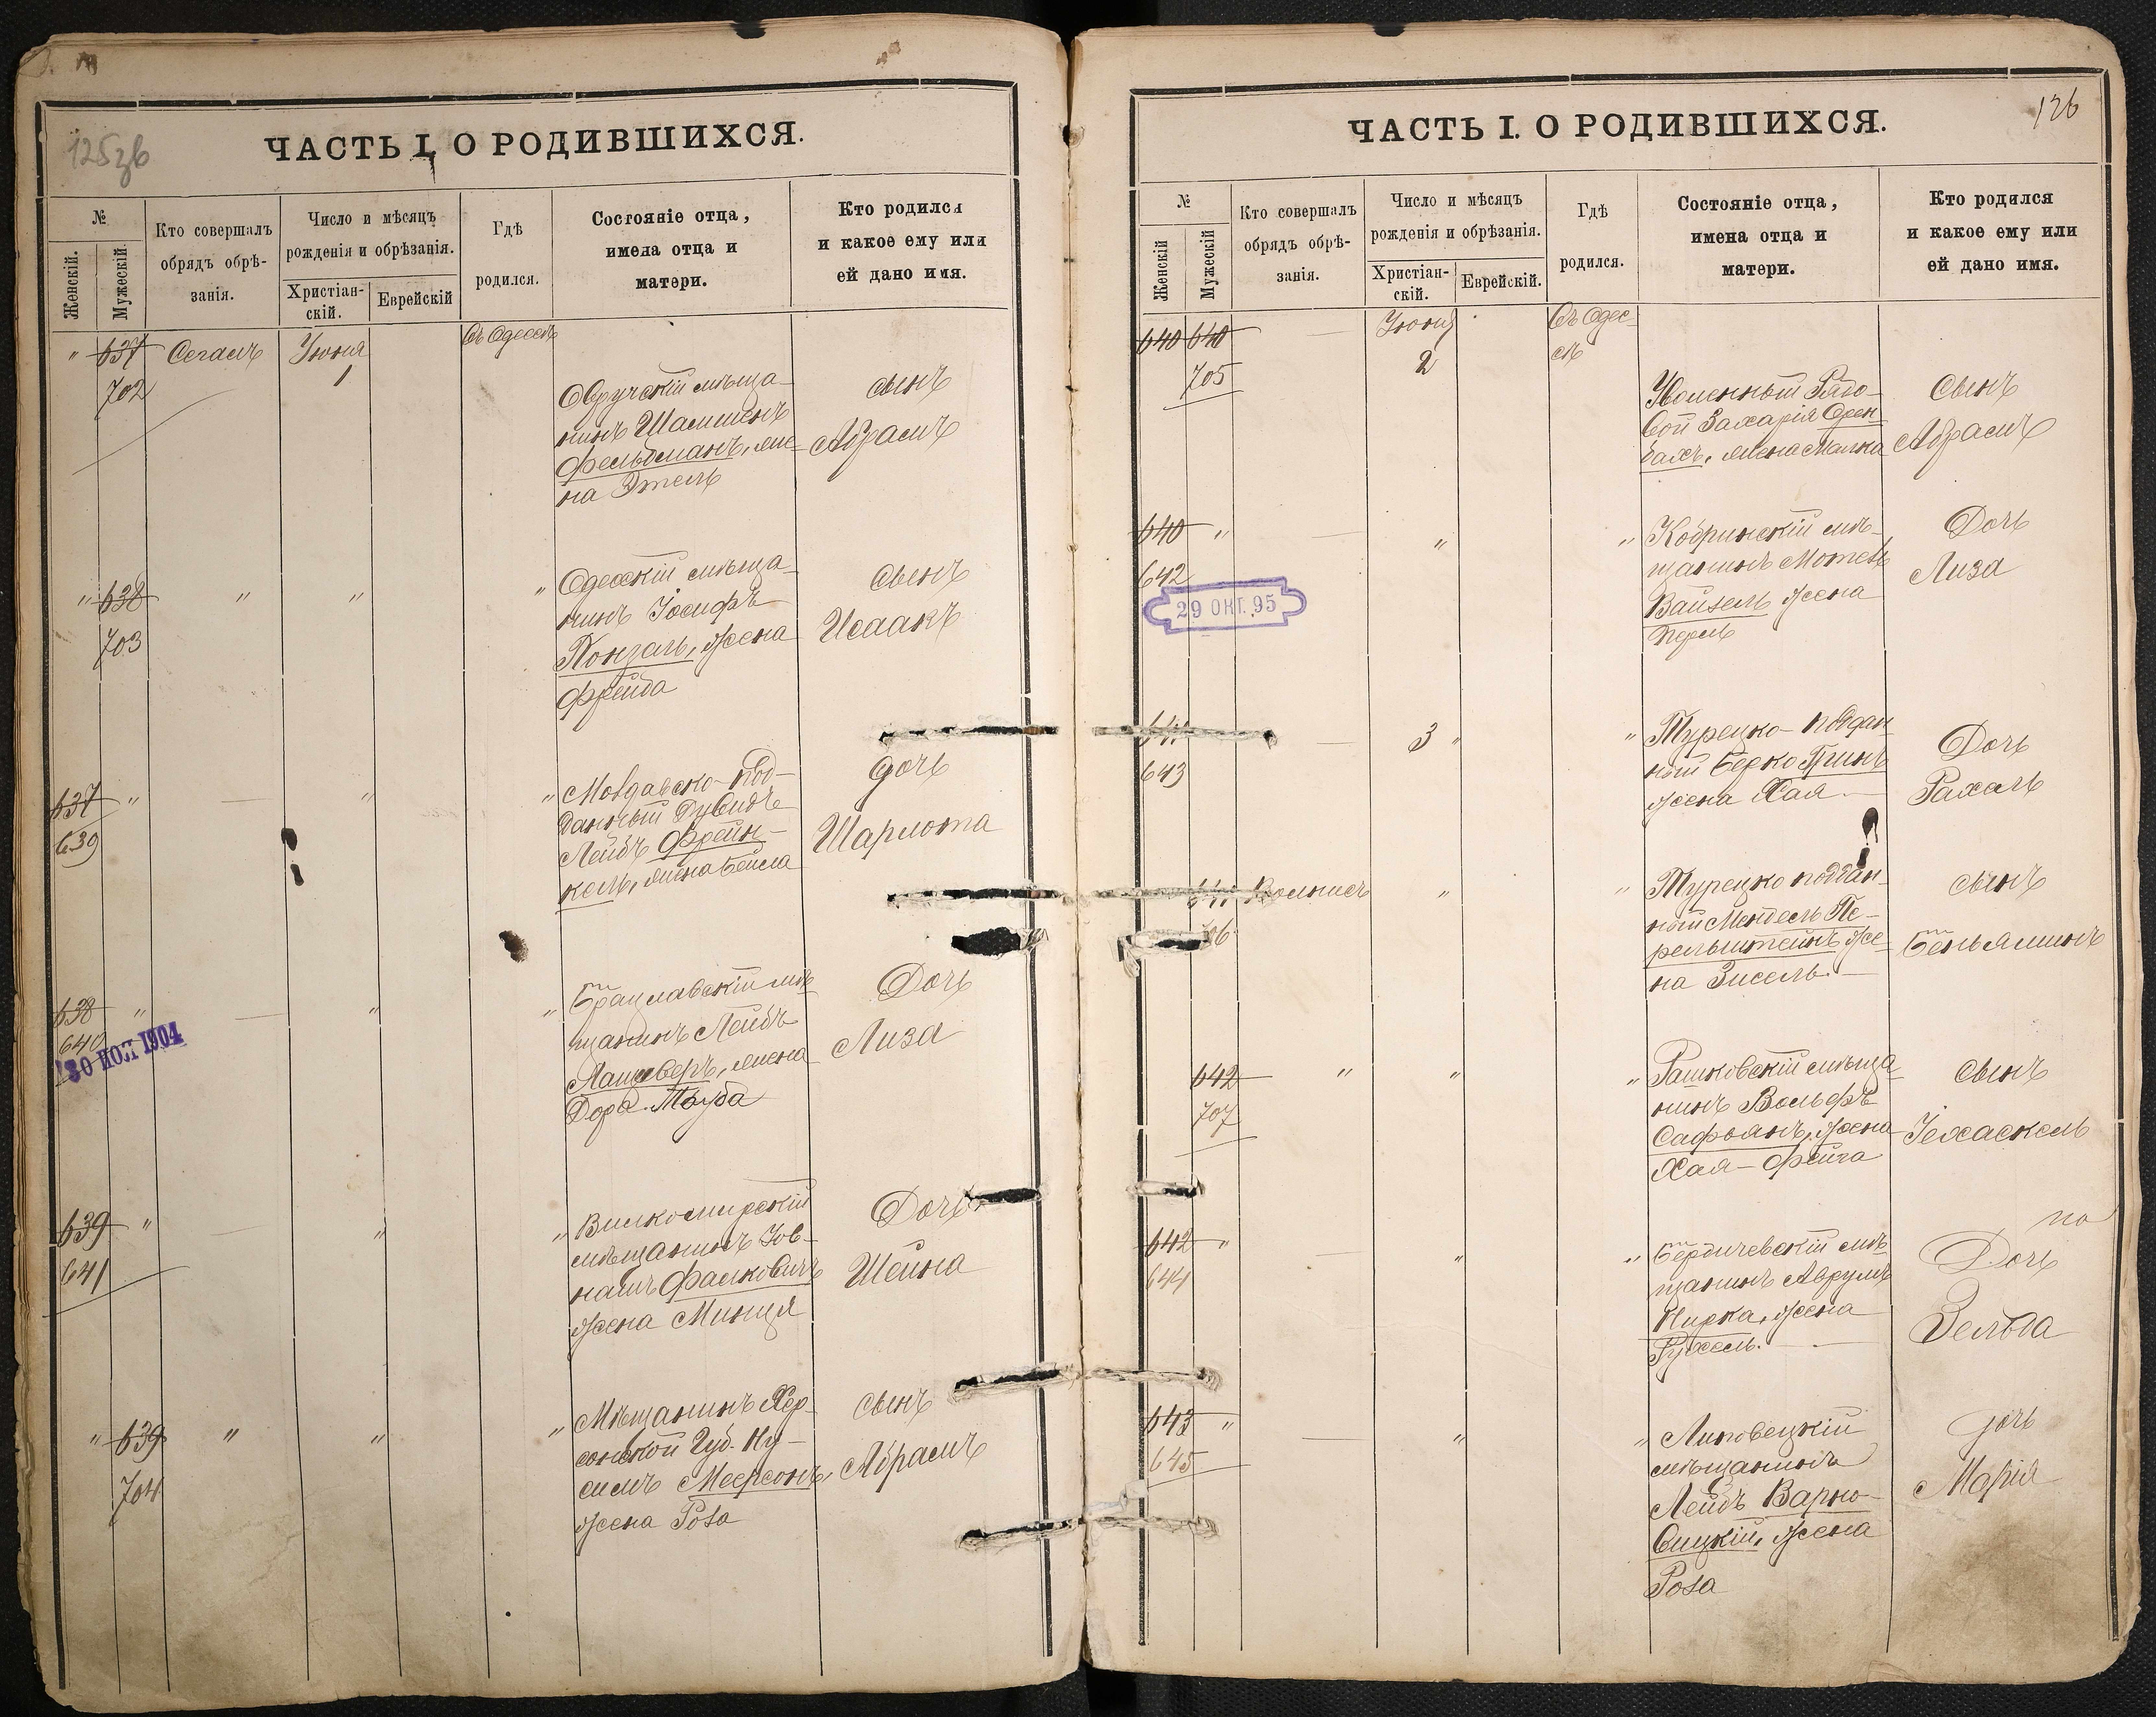 125зв
ЧАСТЬ I. О РОДИВШИХСЯ.
№
Женскій.
Мужескій.
Кто совершалъ
обрядъ обрѣ-
занія.
Число и мѣсяцъ
рожденія и обрѣзанія.
Христіан-
скій.
Еврейскій
Гдѣ
родился.
Состояніе отца,
имена отца и
матери.
Кто родился
и какое ему или
ей дано имя.
" 637 Сегалъ Іюня Въ Одессѣ
702 1
Овручскій мѣща-
нинъ Шамшенъ
Фельдманъ, же-
на Этель
сынъ
Абрамъ
" 638 " " "
703
Одесскій мѣща-
нинъ Іосифъ
жена
Фрейда
сынъ
Исаакъ
637 " — " "
639
Молдавско-под-
данный Дувидъ
Лейбъ Френ-
кель, жена Бейла
дочь
Шарлота
638 " — " "
640
30 НОЯ 1904
Брацлавскій мѣ-
щанинъ Лейбъ
жена
Дора-Тауба
Дочь
Лиза
639 " — " "
641
Вилкомирскій
мѣщанинъ Іов-
Фалковичъ
жена Минця
Дочь
Шейна
" 639 " " "
704
Мѣщанинъ Хер-
сонской Губ. Ну-
симъ Меерсонъ,
жена Роза
сынъ
Абрамъ
126
ЧАСТЬ I. О РОДИВШИХСЯ.
№
Женскій
Мужескій
Кто совершалъ
обрядъ обрѣ-
занія.
Число и мѣсяцъ
рожденія и обрѣзанія.
Христіан-
скій.
Еврейскій.
Гдѣ
родился.
Состояніе отца,
имена отца и
матери.
Кто родился
и какое ему или
ей дано имя.
640 640 — Іюня Въ Одес-
705 2 сѣ
Уволенный Рядо-
вой Захарія Орен-
бахъ, жена Малка
Сынъ
Абрамъ
640 " — " "
642
29 ОКТ. 95
Кобринскій мѣ-
щанинъ Мотель
Вайзель жена
Перль
Дочь
Лиза
641 — 3 " "
643
Турецко-поддан-
ный Берко
жена Хая —
Дочь
Рахель
" "
Турецко поддан-
ный Мендель Пе-
рельштейнъ же-
на Зисель. —
сынъ
Беньяминъ
642 " " "
707
Рашковскій мѣща-
нинъ Вольфъ
Сафьянъ, жена
Хая-Фейга
сынъ
Іехаскель
642 " — " "
644
Бердичевскій мѣ-
щанинъ Аврумъ
жена
Рухель. —
Дочь
Зельда
643 " — " "
645
Липовецкій
мѣщанинъ
Лейбъ Варно-
вицкій, жена
Роза
дочь
Марія